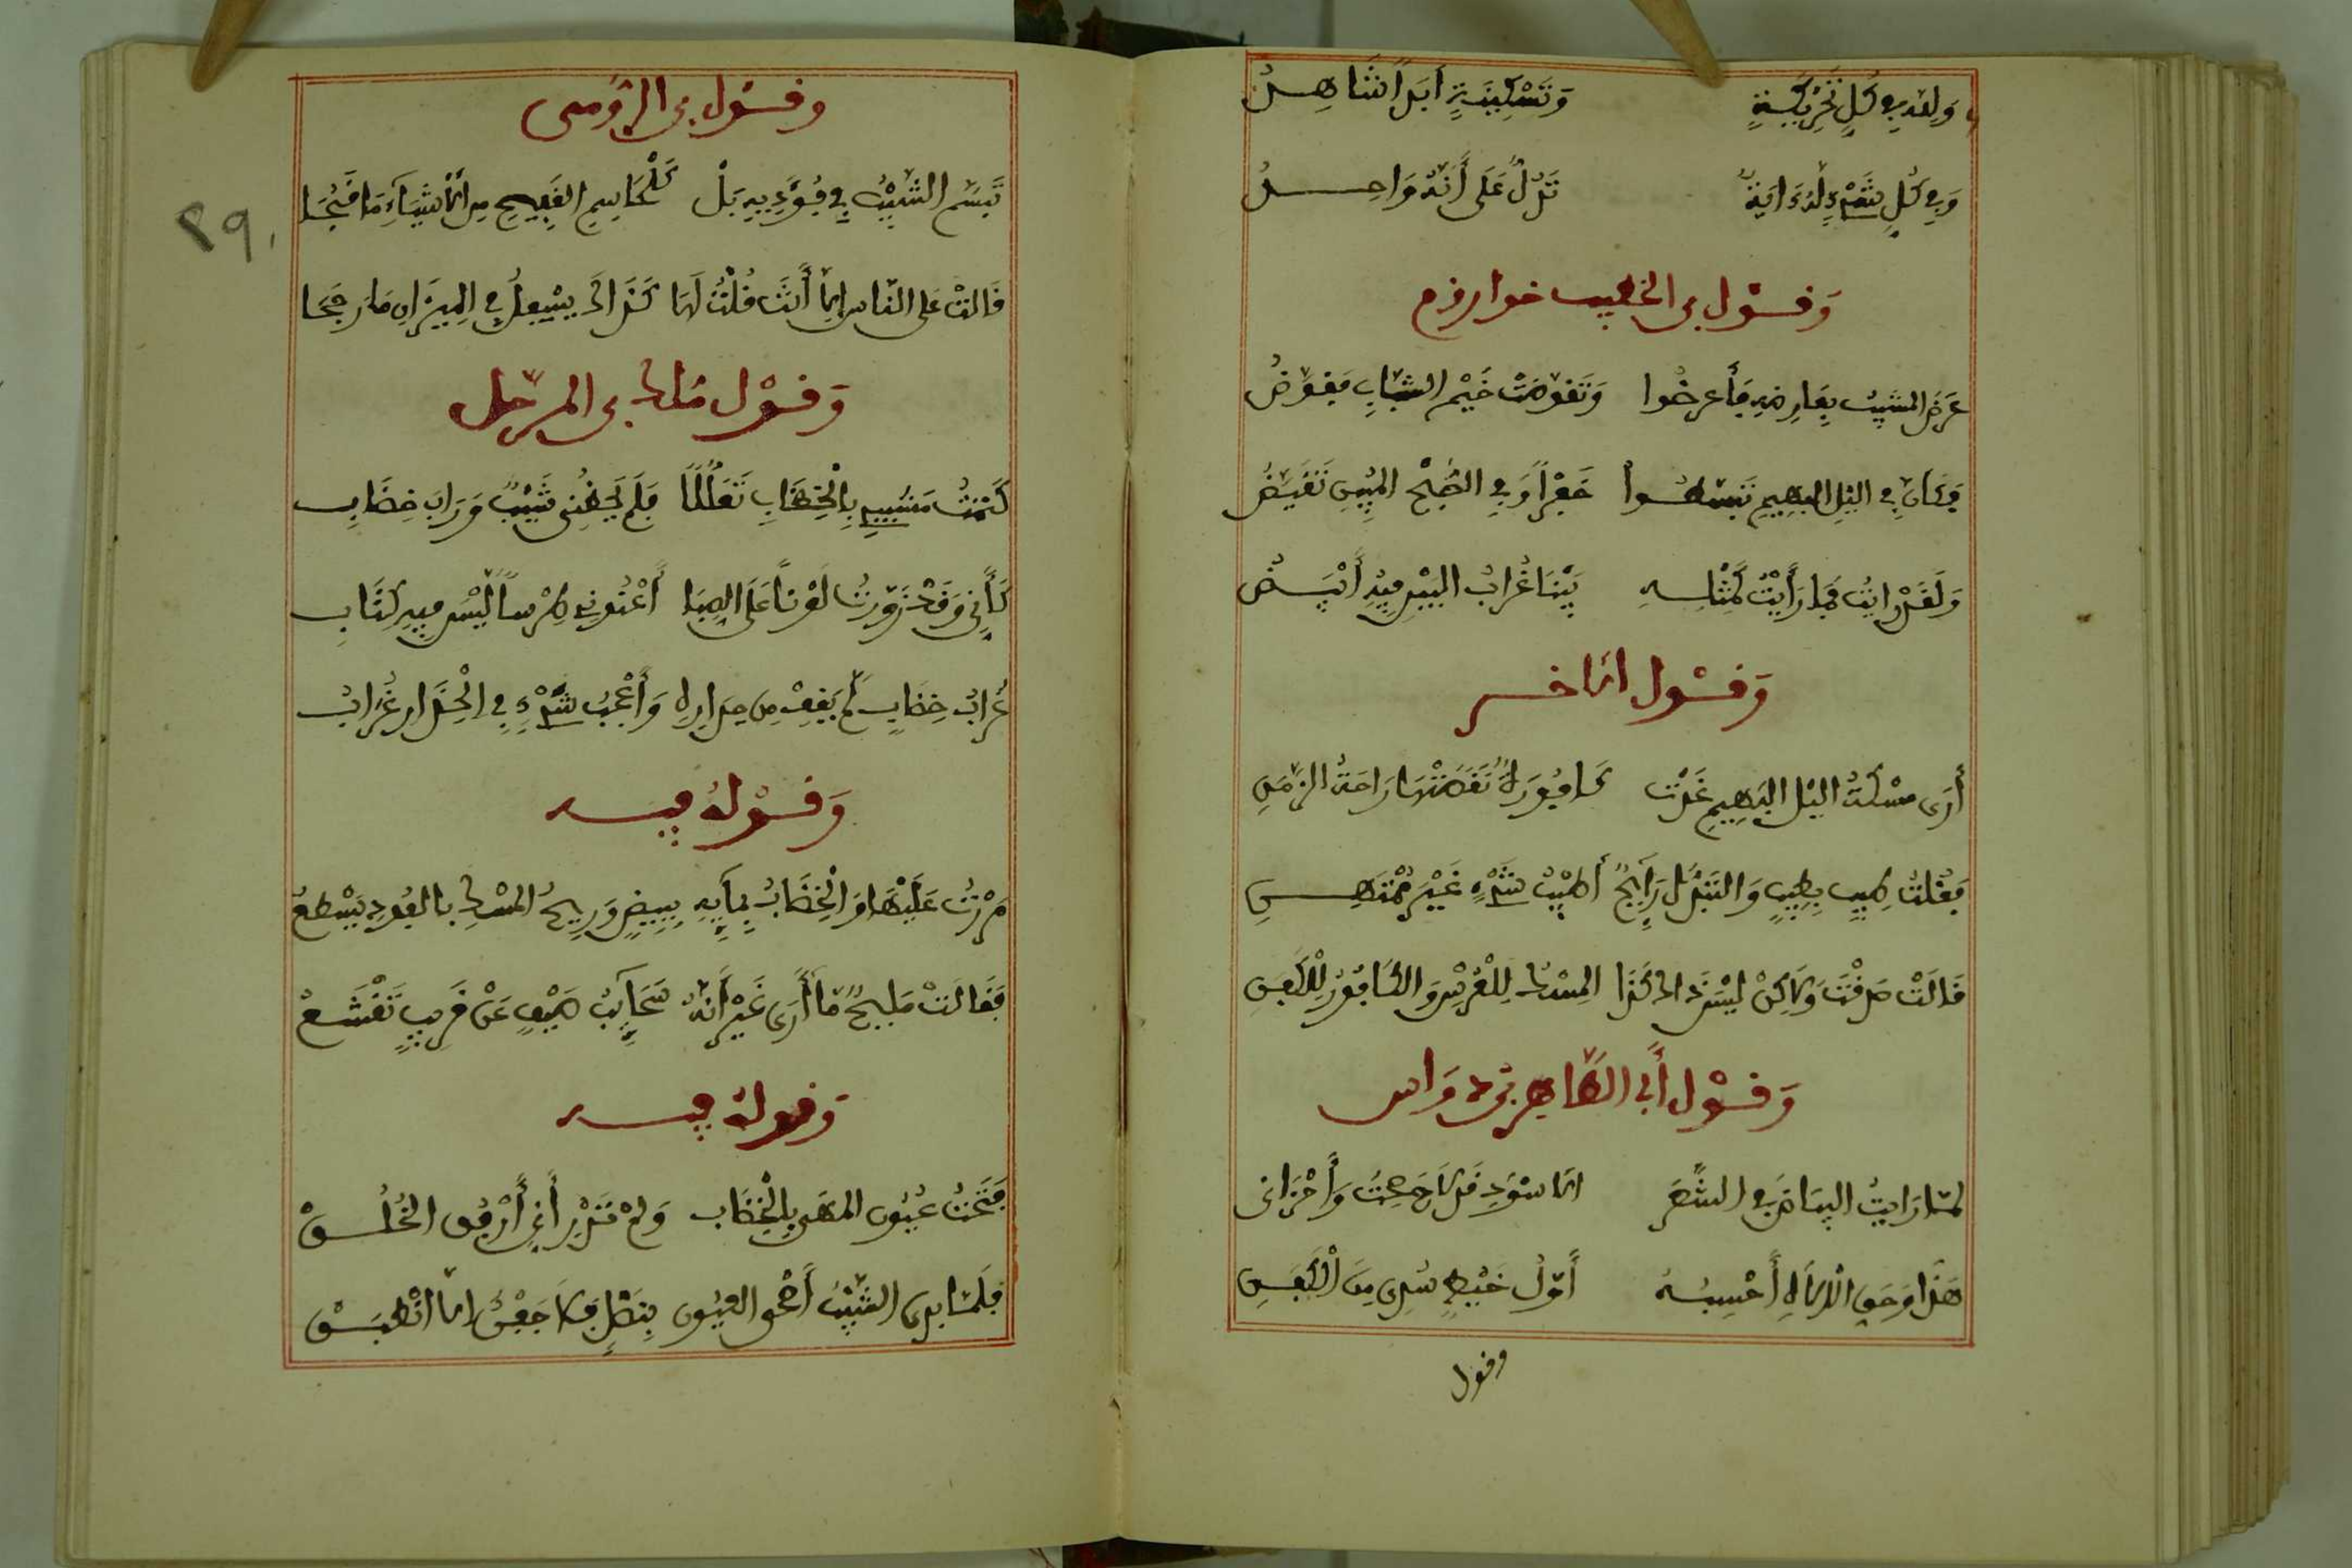 وَلِلَّهِ فِي كُلِّ تَحْرِيكَةٍ وَتَسْكِينَةٍ أَبَدًا شَاهِدُ
وَفِي كُلِّ شَيْءٍ لَهُ ءَايَةٌ تَدُلُّ عَلَى أَنَّهُ وَاحِدُ
وَقَوْل بن الخطيب خوارزم
عَرَضَ المشيبُ بِعَارِضِهِ فَأَعرضُوا وَتَقَوَّضَتْ خَيْمُ الشَّبَابِ فَقَوَّضُ
فَكَانَ فِي اليْلِ البَهِيمِ تَبَسَّطُوا خَفْرًا وَفِي الصُّبْحِ المُبِينِ تَقَيَّضُ
وَلَقَدْ رايتُ فَمَا رَأَيْتُ كَمِثْلِهِ بَيْنَا غُرَابُ البَيْنِ فِيهِ أَبْيَضُ
وَقَوْل الاخر
أَرَى مسْكَةُ اليْل البَهِيمِ غَدَتْ كَافُورَةً نَفَضَتْهَا رَاحَةُ الزَّمَنِ
فَقُلْتُ طِيبٍ بِطِيبٍ وَالتَّبَدُّل رَايِحٌ أَطْيَبُ شَيْءٍ غَيْرَ مُمْتَهَنِ
قَالَتْ صَدَقْتَ وَلَاكِنْ لَيْسَ ذَاكَ كَذَا المِسْكُ لِلْعُرْسِ وَالكَافُورُ لِلْكَفَنِ
وَقَوْل أَبِي الطَّاهِر
لمَّا رَايتُ البيَاضَ فِي الشَّعَرِ الاسْوَدِ قَدْ لَاحَ صِحْتُ وَاحَزَانِي
هَذَا وَحَقِّ الالَاهِ أَحْسِبُهُ أَوَّلُ خَيْطٍ سُدِي مِنَ الكَفَنِ
وقول
وقَوْل بن الرّومى
تَبَسَّم الشَّيْبُ فِي فَوْدَيْهِ بَلْ كَلَحَا سِيمِ القَبِيحِ مِن الأشْيَاءِ مَا قَبُحَا
قَالتْ عَلى النَّاس إِمَّا أَنتَ قُلتُ لَهَا كَذَاكَ يسْفُلُ فِي المِيزَانِ مَا رَجَحَا
وَقَوْل مالك بن المرحّل
كَتَمْتُ مَشِيبِي بِالْخِضَابِ تَعَلُّلًا فَلَم يَخْفِنِي شَيْبٌ وَرَاءَ خِضَابِ
كَأَنِّي وَقَدْ زَوَّرْتُ لَوْنًا عَلَى الصِّبَا أُعَنْوِنُ طِرْسًا لَيْسَ فِيهِ كِتَابِ
غُرَابُ خِضَابٍ لَمْ يَقِفْ مِن حِذَارِهِ وَأَعْجَبُ شَيْءٍ فِي الْحِذَارِ غُرَابُ
وَقَوْلهُ فيه
مَرَرْتُ عَلَيْهَا وَالْخِضَابُ بِمَايِهِ يَبِيضُ وَرِيحُ المسْكِ بالفَوْدِ يَسْطَعُ
فَقَالتْ مَلِيحٌ مَا أَرَى غَيْرَ أَنَّهُ سَحَايِبُ صَيْفٍ عَنْ قَرِيبٍ تَقَشَّعُ
وَقوله فيه
فَتَحْتُ عُيُونَ المَهَى بِالْخِضَابِ وَلَمْ تَدْرِ أَنِّي أَرْمُقُ الخُلُقْ
فَلَمَّا بدى الشَّيْبُ أَضْحى العيُون بِنَصْلٍ فَلَا جَفْنَ إلّا انْطَبَقْ
٢٩٠